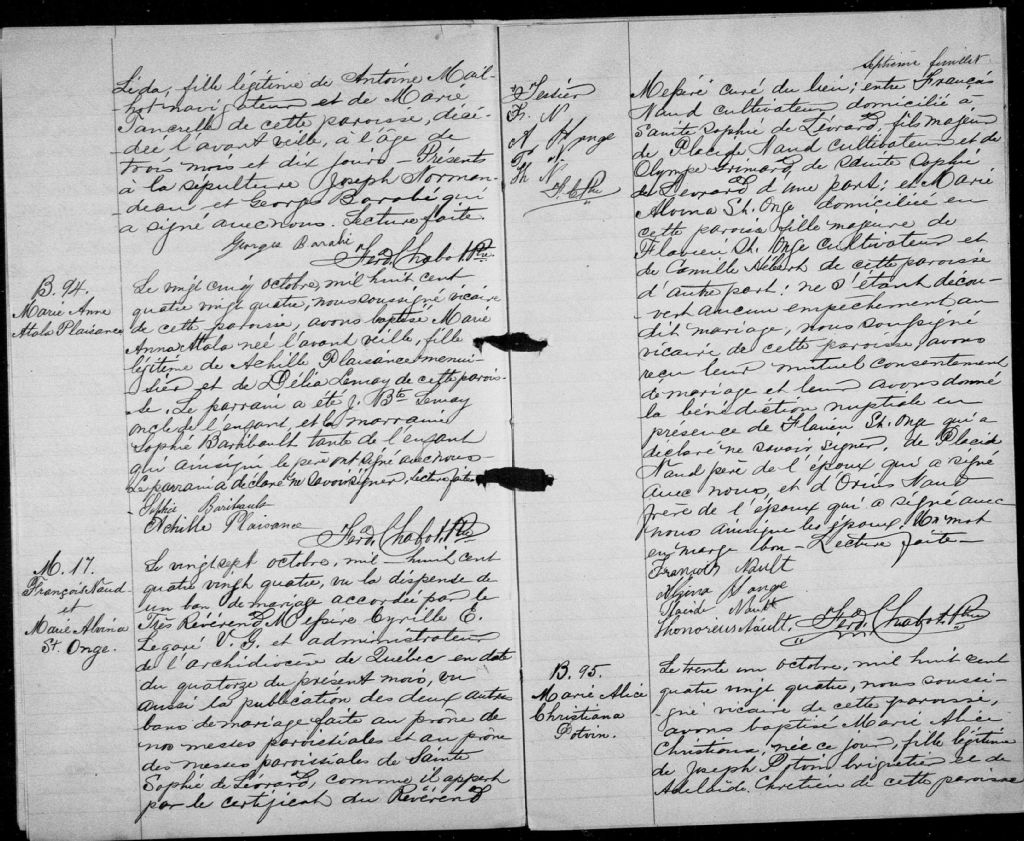 Léda, fille légitime de Antoine Mail-
hot navigateur et de Marie
Tancrelle de cette paroisse, décé-
dée l'avant veille, à l'âge de
trois mois et dix jours - Présents
à la sépulture Joseph Norman-
deau et George Barabé qui
a signé avec nous. Lecture faite.
George Barabé
Ferd. Chabot Ptre
B. 94.
Marie Anne
Atala Plaisance
Le vingt cinq octobre, mil huit cent
quatre vingt quatre, nous soussigné vicaire
de cette paroisse, avons baptisé Marie
Anna Atala née l'avant veille, fille
légitime de Achille Plaisance menui-
sier et de Délia Lemay de cette parois-
se. Le parrain a été J. Bte Lemay
oncle de l'enfant, et la marraine
Sophie Baribault tante de l'enfant
qui ainsi que le père ont signé avec nous -
Le parrain a déclaré ne savoir signer, lecture faite
Sophie Baribault
Achille Plaisance
Ferd. Chabot Ptre
M. 17.
François Naud
et
Marie Alvina
St. Onge.
Le vingt sept octobre, mil - huit cent
quatre vingt quatre, vu la dispense de
un ban de mariage accordée par le
Très Révérend Messire Cyrille E.
Legaré V. G. et administrateur
de l'archidiocèse de Québec en date
du quatorze du présent mois, vu
aussi la publication des deux autres
bans de mariage faite au prône de
nos messes paroissiales et au prône
des messes paroissiales de Sainte
Sophie de Lévrard, comme il appert
par le certificat du Révérend
Septième feuillet
Tessier
Fr. N
A H onge
Pd N
Th N.
F. C. Ptre
Mesiré curé du lieu; entre François
Naud cultivateur domicilié à
Sainte Sophie de Lévrard, fils majeur
de Placide Naud cultivateur et de
Olympe Grimard, de Sainte Sophie
de Levrard d'une part; et Marie
Alvina St. Onge domiciliée en
cette paroisse fille majeure de
Flavien St. Onge cultivateur et
de Camille Hébert de cette paroisse
d'autre part: ne s'étant décou-
vert aucun empêchement au
dit mariage, nous soussigné
vicaire de cette paroisse, avons
reçu leur mutuel consentement
de mariage et leur avons donné
la bénédiction nuptiale en
présence de Flavien St. Onge qui a
déclaré ne savoir signer, de Placid
Naud père de l'époux qui a signé
avec nous, et d'Orius Naud
frère de l'époux qui a signé avec
nous ainsi que les époux. Un mot
en marge bon - Lecture faite -
François Nault
Alvina H onge
Plaside Nault
Thonorius Nault.
Ferd. Chabot Ptre
B. 95.
Marie Alice
Christiana
Potvin.
Le trente un octobre, mil huit cent
quatre vingt quatre, nous soussi-
gné vicaire de cette paroisse,
avons baptisé Marie Alice
Christiana, née ce jour, fille légitime
de Joseph Potvin briquetier et de
Adelaïde Chrétien de cette paroisse